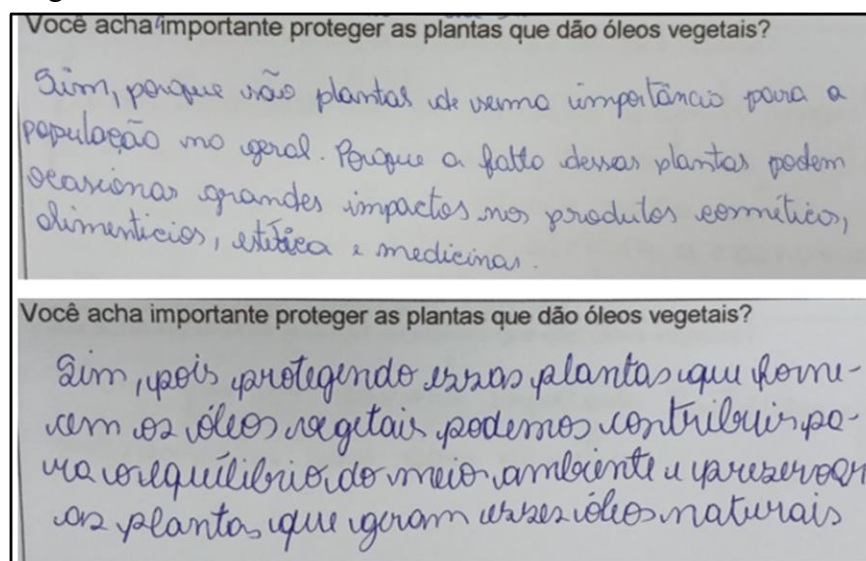 Você acha importante proteger as plantas que dão óleos vegetais?
Sim, porque são plantas de suma importância para a
população no geral. Porque a falta dessas plantas podem
ocasionar grandes impactos nos produtos cosméticos,
alimenticios, estética e medicinas.
Você acha importante proteger as plantas que dão óleos vegetais?
Sim, pois protegendo essas plantas que forne-
cem os óleos vegetais podemos contribuir pa-
ra o equílibrio do meio ambiente e preservar
as plantas que geram esses óleos naturais